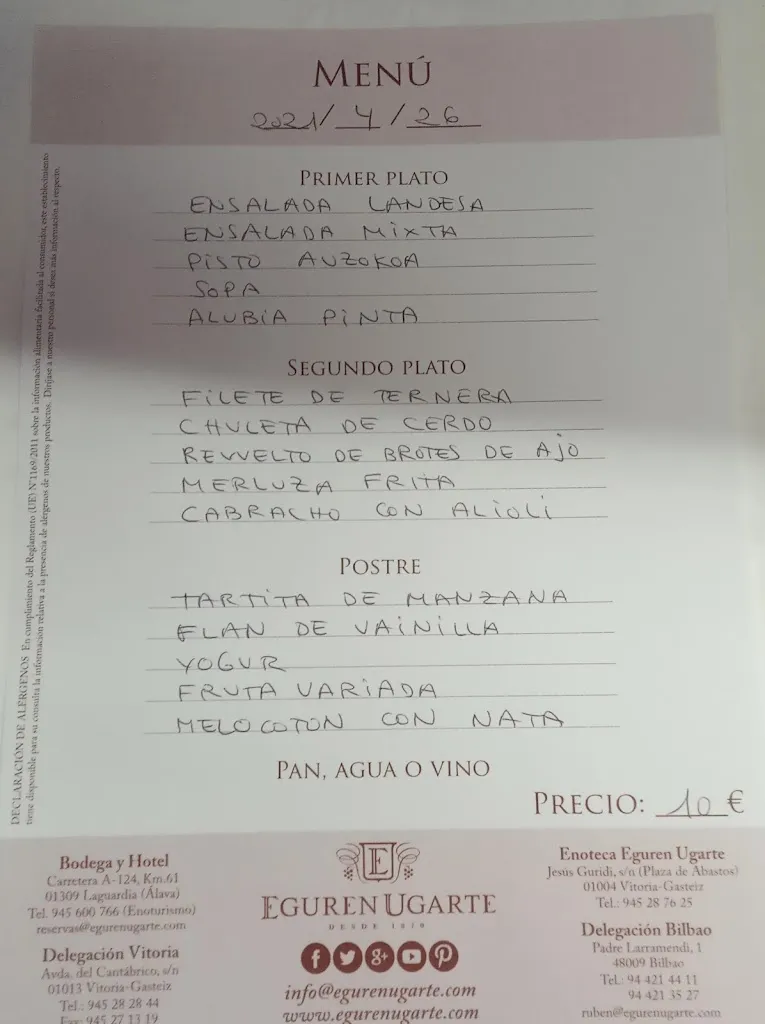 MENÚ
2021/4/26
PRIMER PLATO
ENSALADA LANDESA
ENSALADA MIXTA
PISTO AUZOKOA
SOPA
ALUBIA PINTA
SEGUNDO PLATO
FILETE DE TERNERA
CHULETA DE CERDO
REVUELTO DE BROTES DE AJO
MERLUZA FRITA
CABRACHO CON ALIOLI
POSTRE
TARTITA DE MANZANA
FLAN DE VAINILLA
YOGUR
FRUTA VARIADA
MELOCOTON CON NATA
PAN, AGUA O VINO
PRECIO: 10 €
DECLARACIÓN DE ALÉRGENOS En cumplimiento del Reglamento (UE) Nº1169/2011 sobre la información alimentaria facilitada al consumidor, este establecimiento
tiene disponible para su consulta la información relativa a la presencia de alérgenos de nuestros productos. Diríjase a nuestro personal si desea más información al respecto.
Bodega y Hotel
Carretera A-124, Km.61
01309 Laguardia (Álava)
Tel. 945 600 766 (Enoturismo)
reservas@egurenugarte.com
Delegación Vitoria
Avda. del Cantábrico, s/n
01013 Vitoria-Gasteiz
Tel.: 945 28 28 44
Fax: 945 27 13 19
E
EGUREN UGARTE
DESDE 1870
f g+ YouTube P
info@egurenugarte.com
www.egurenugarte.com
Enoteca Eguren Ugarte
Jesús Guridi, s/n (Plaza de Abastos)
01004 Vitoria-Gasteiz
Tel.: 945 28 76 25
Delegación Bilbao
Padre Larramendi, 1
48009 Bilbao
Tel.: 94 421 44 11
94 421 35 27
ruben@egurenugarte.com